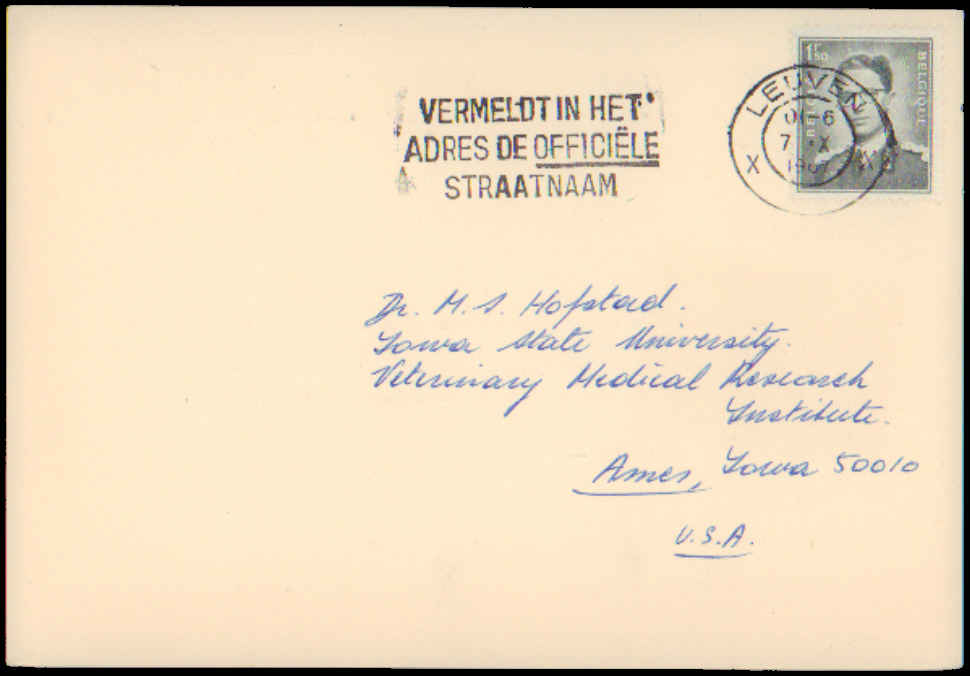 VERMELDT IN HET
ADRES DE OFFICIËLE
STRAATNAAM
LEUVEN
7 -X
X X
1F50
BELGIQUE
Dr. M. S. Hofstad.
Iowa State University.
Veterinary Medical Research
Institute.
Ames, Iowa 50010
U.S.A.